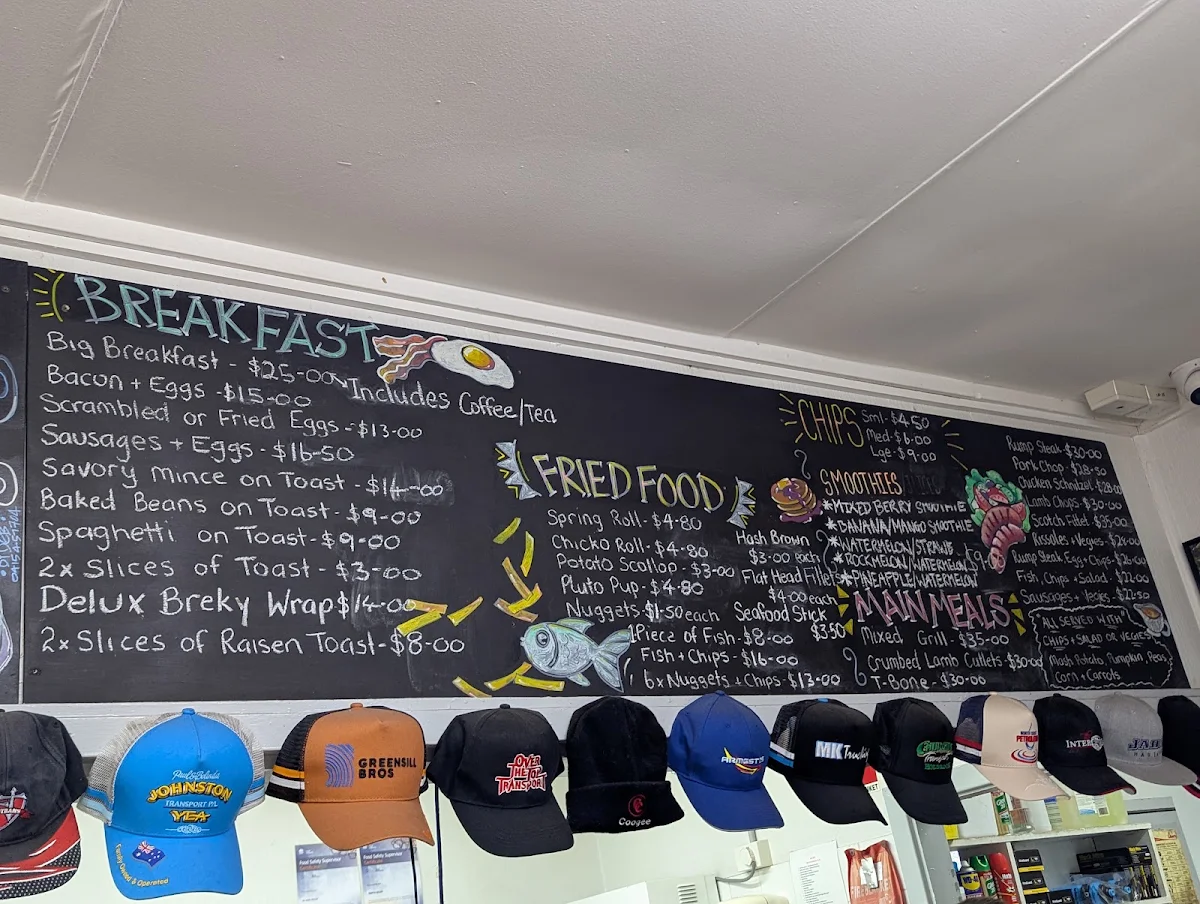 BREAKFAST
Big Breakfast - $25-00
Includes Coffee/Tea
Bacon + Eggs - $15-00
Scrambled or Fried Eggs - $13-00
Sausages + Eggs - $16-50
Savory mince on Toast - $14-00
Baked Beans on Toast - $9-00
Spaghetti on Toast - $9-00
2x Slices of Toast - $3-00
Delux Breky Wrap $14-00
2x Slices of Raisen Toast - $8-00
FRIED FOOD
Spring Roll - $4-80
Chicko Roll - $4-80
Potato Scollop - $3-00
Pluto Pup - $4-80
Nuggets - $1-50 each
1 Piece of Fish - $8-00
Fish + Chips - $16-00
6x Nuggets + Chips - $13-00
Hash Brown
$3-00 each
Flat Head Fillets
$4-00 each
Seafood Stick
$3-50
CHIPS
Sml - $4-50
Med - $6-00
Lge - $9-00
SMOOTHIES
*MIXED BERRY SMOOTHIE
*BANANA/MANGO SMOOTHIE
*WATERMELON/STRAWB
*ROCKMELON/WATERMELON
*PINEAPPLE/WATERMELON
MAIN MEALS
Mixed Grill - $35-00
Crumbed Lamb Cutlets - $30-00
T-Bone - $30-00
Rump Steak - $30-00
Pork Chop - $28-50
Chicken Schnitzel - $28-00
Lamb Chops - $30-00
Scotch Fillet - $35-00
Rissoles + Vegies -
Rump Steak Egg + Chips -
Fish, Chips + Salad - $22-00
Sausages + Vegies - $22-50
ALL SERVED WITH
CHIPS + SALAD OR VEGIES
Mash Potato, Pumpkin, Peas
Corn + Carrots
JOHNSTON
TRANSPORT P/L
YEA
Family Owned & Operated
GREENSILL
BROS
OVER
THE TOP
TRANSPORT
Coogee
MK Trucking
PETROLEUM
Food Safety Supervisor